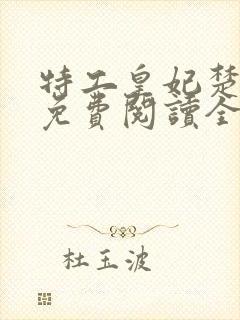 特工皇妃楚
免費閱讀全
杜玉波